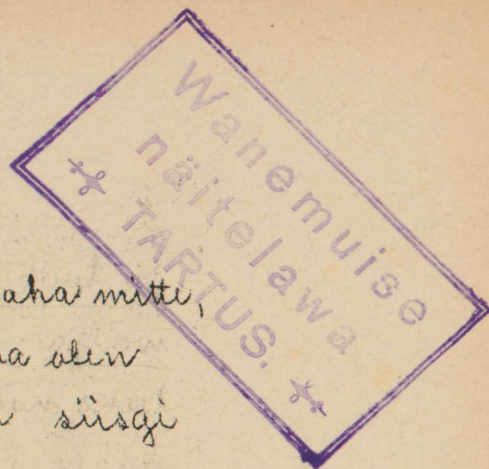 Wanemuise
näitelawa
TARTUS.
aha mitte,
a olen
siisgi